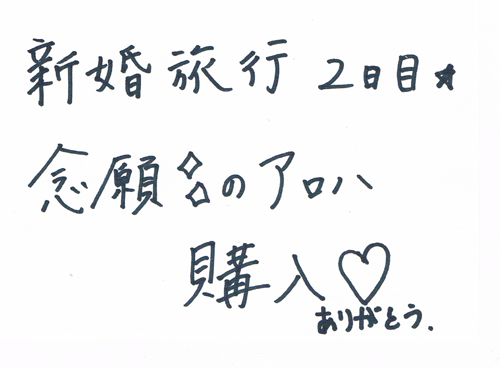 新婚旅行 2日目★
念願✧✧のアロハ
購入♡
ありがとう.